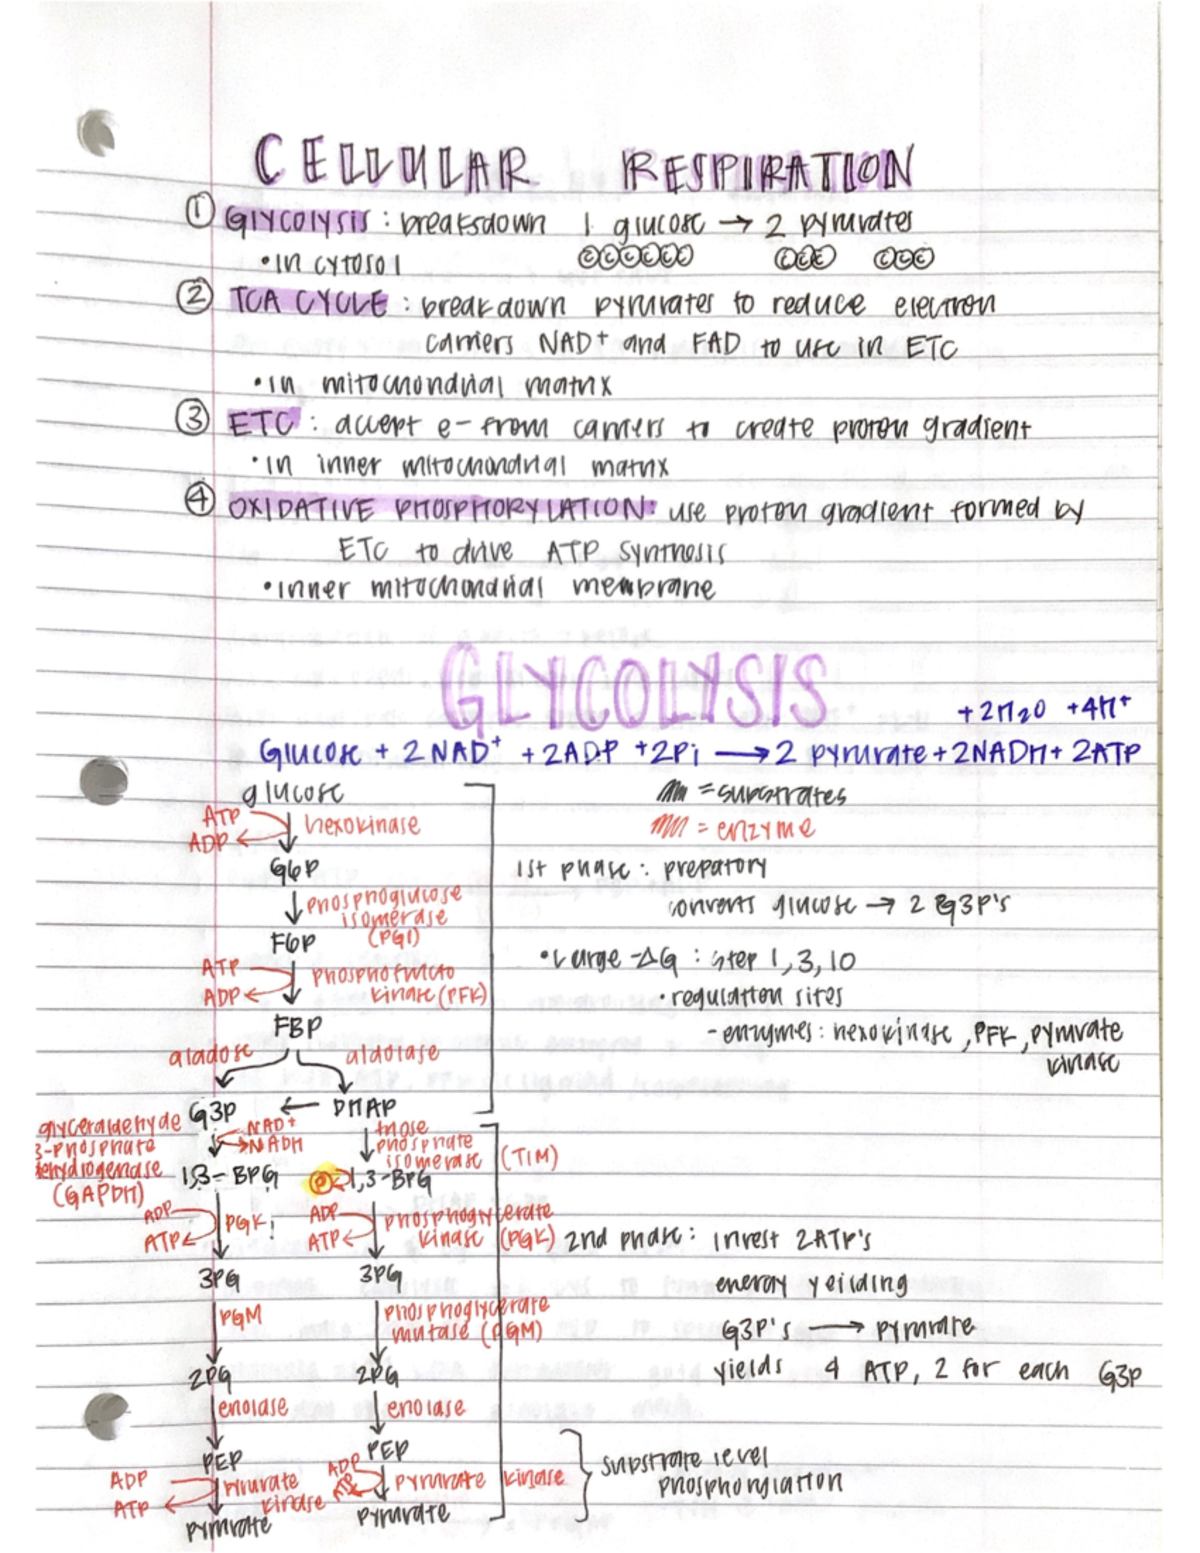 CELLULAR RESPIRATION
① GLYCOLYSIS : breaksdown 1 glucose → 2 pyruvates
• in cytosol ⒸⒸⒸⒸⒸⒸ ⒸⒸⒸ ⒸⒸⒸ
② TCA CYCLE : breakdown pyruvates to reduce electron
carriers NAD⁺ and FAD to use in ETC
• in mitochondrial matrix
③ ETC : accept e- from carriers to create proton gradient
• in inner mitochondrial matrix
④ OXIDATIVE PHOSPHORYLATION: use proton gradient formed by
ETC to drive ATP synthesis
• inner mitochondrial membrane
GLYCOLYSIS
+2H20 +4H⁺
Glucose + 2NAD⁺ + 2ADP + 2Pi → 2 pyruvate + 2NADH + 2ATP
glucose
ATP
ADP
hexokinase
G6P
phosphoglucose
isomerase
(PGI)
F6P
ATP
ADP
phosphofructo
kinase (PFK)
FBP
aladose aldolase
G3P ← DHAP
glyceraldehyde
3-phosphate
dehydrogenase
(GAPDH)
NAD⁺
NADH
triose
phosphate
isomerase (TIM)
1,3-BPG P 1,3-BPG
ADP
ATP
PGK
ADP
ATP
phosphoglycerate
kinase (PGK)
3PG 3PG
PGM
phosphoglycerate
mutase (PGM)
2PG 2PG
enolase enolase
PEP PEP
ADP
ATP
pyruvate
kinase
ADP
ATP
pyruvate kinase
pyruvate pyruvate
= substrates
= enzyme
1st phase : prepatory
converts glucose → 2 G3P's
• Large -ΔG : step 1, 3, 10
• regulation sites
- enzymes: hexokinase, PFK, pyruvate
kinase
2nd phase: invest 2ATP's
energy yeilding
G3P's → pyruvate
yields 4 ATP, 2 for each G3P
substrate level
phosphorylation